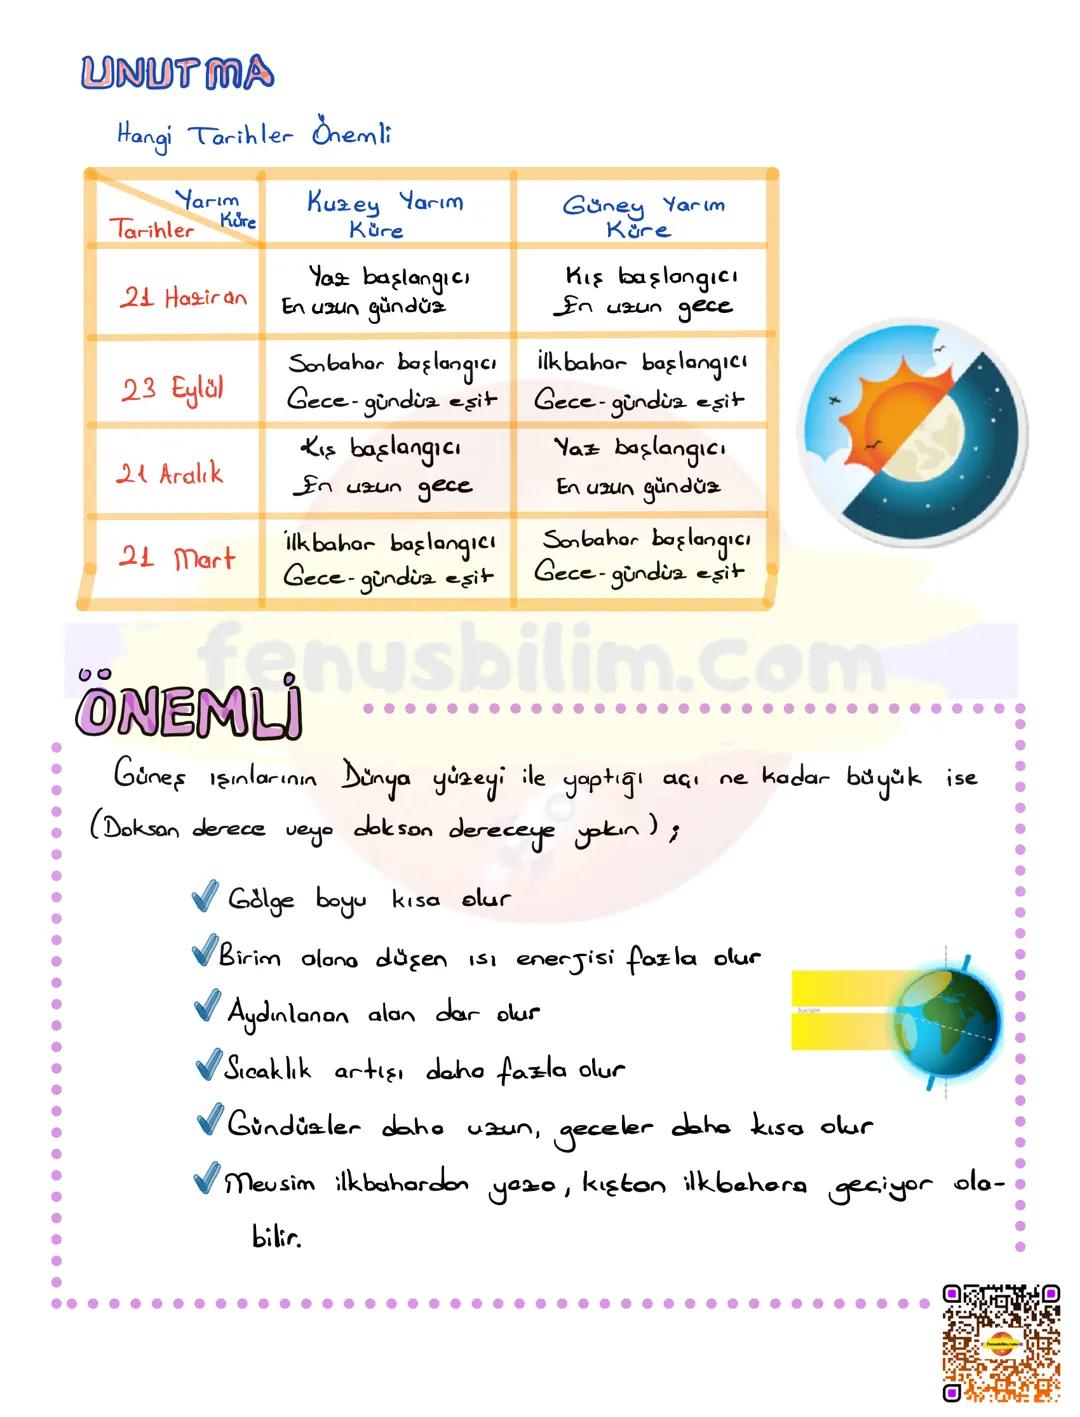 UNUTMA
Hangi Tarihler Önemli
Yarım Küre
Tarihler
Kuzey Yarım Küre
Güney Yarım Küre
21 Haziran
Yaz başlangıcı
En uzun gündüz
Kış başlangıcı
En uzun gece
23 Eylül
Sonbahar başlangıcı
Gece-gündüz eşit
İlkbahar başlangıcı
Gece-gündüz eşit
21 Aralık
Kış başlangıcı
En uzun gece
Yaz başlangıcı
En uzun gündüz
21 Mart
İlkbahar başlangıcı
Gece-gündüz eşit
Sonbahar başlangıcı
Gece-gündüz eşit
fenusbilim.com
ÖNEMLİ
Güneş ışınlarının Dünya yüzeyi ile yaptığı açı ne kadar büyük ise
(Doksan derece veya doksan dereceye yakın);
Gölge boyu kısa olur
Birim alana düşen ısı enerjisi fazla olur
Aydınlanan alan dar olur
Sıcaklık artışı daha fazla olur
Gündüzler daha uzun, geceler daha kısa olur
Mevsim ilkbahardan yaza, kıştan ilkbahara geçiyor ola-
bilir.
Sunlight
fenusbilim.com